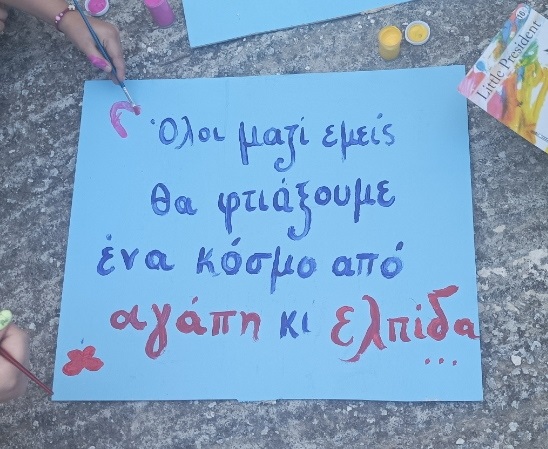 Όλοι μαζί εμείς
θα φτιάξουμε
ένα κόσμο από
αγάπη κι ελπίδα
...
Little President
16